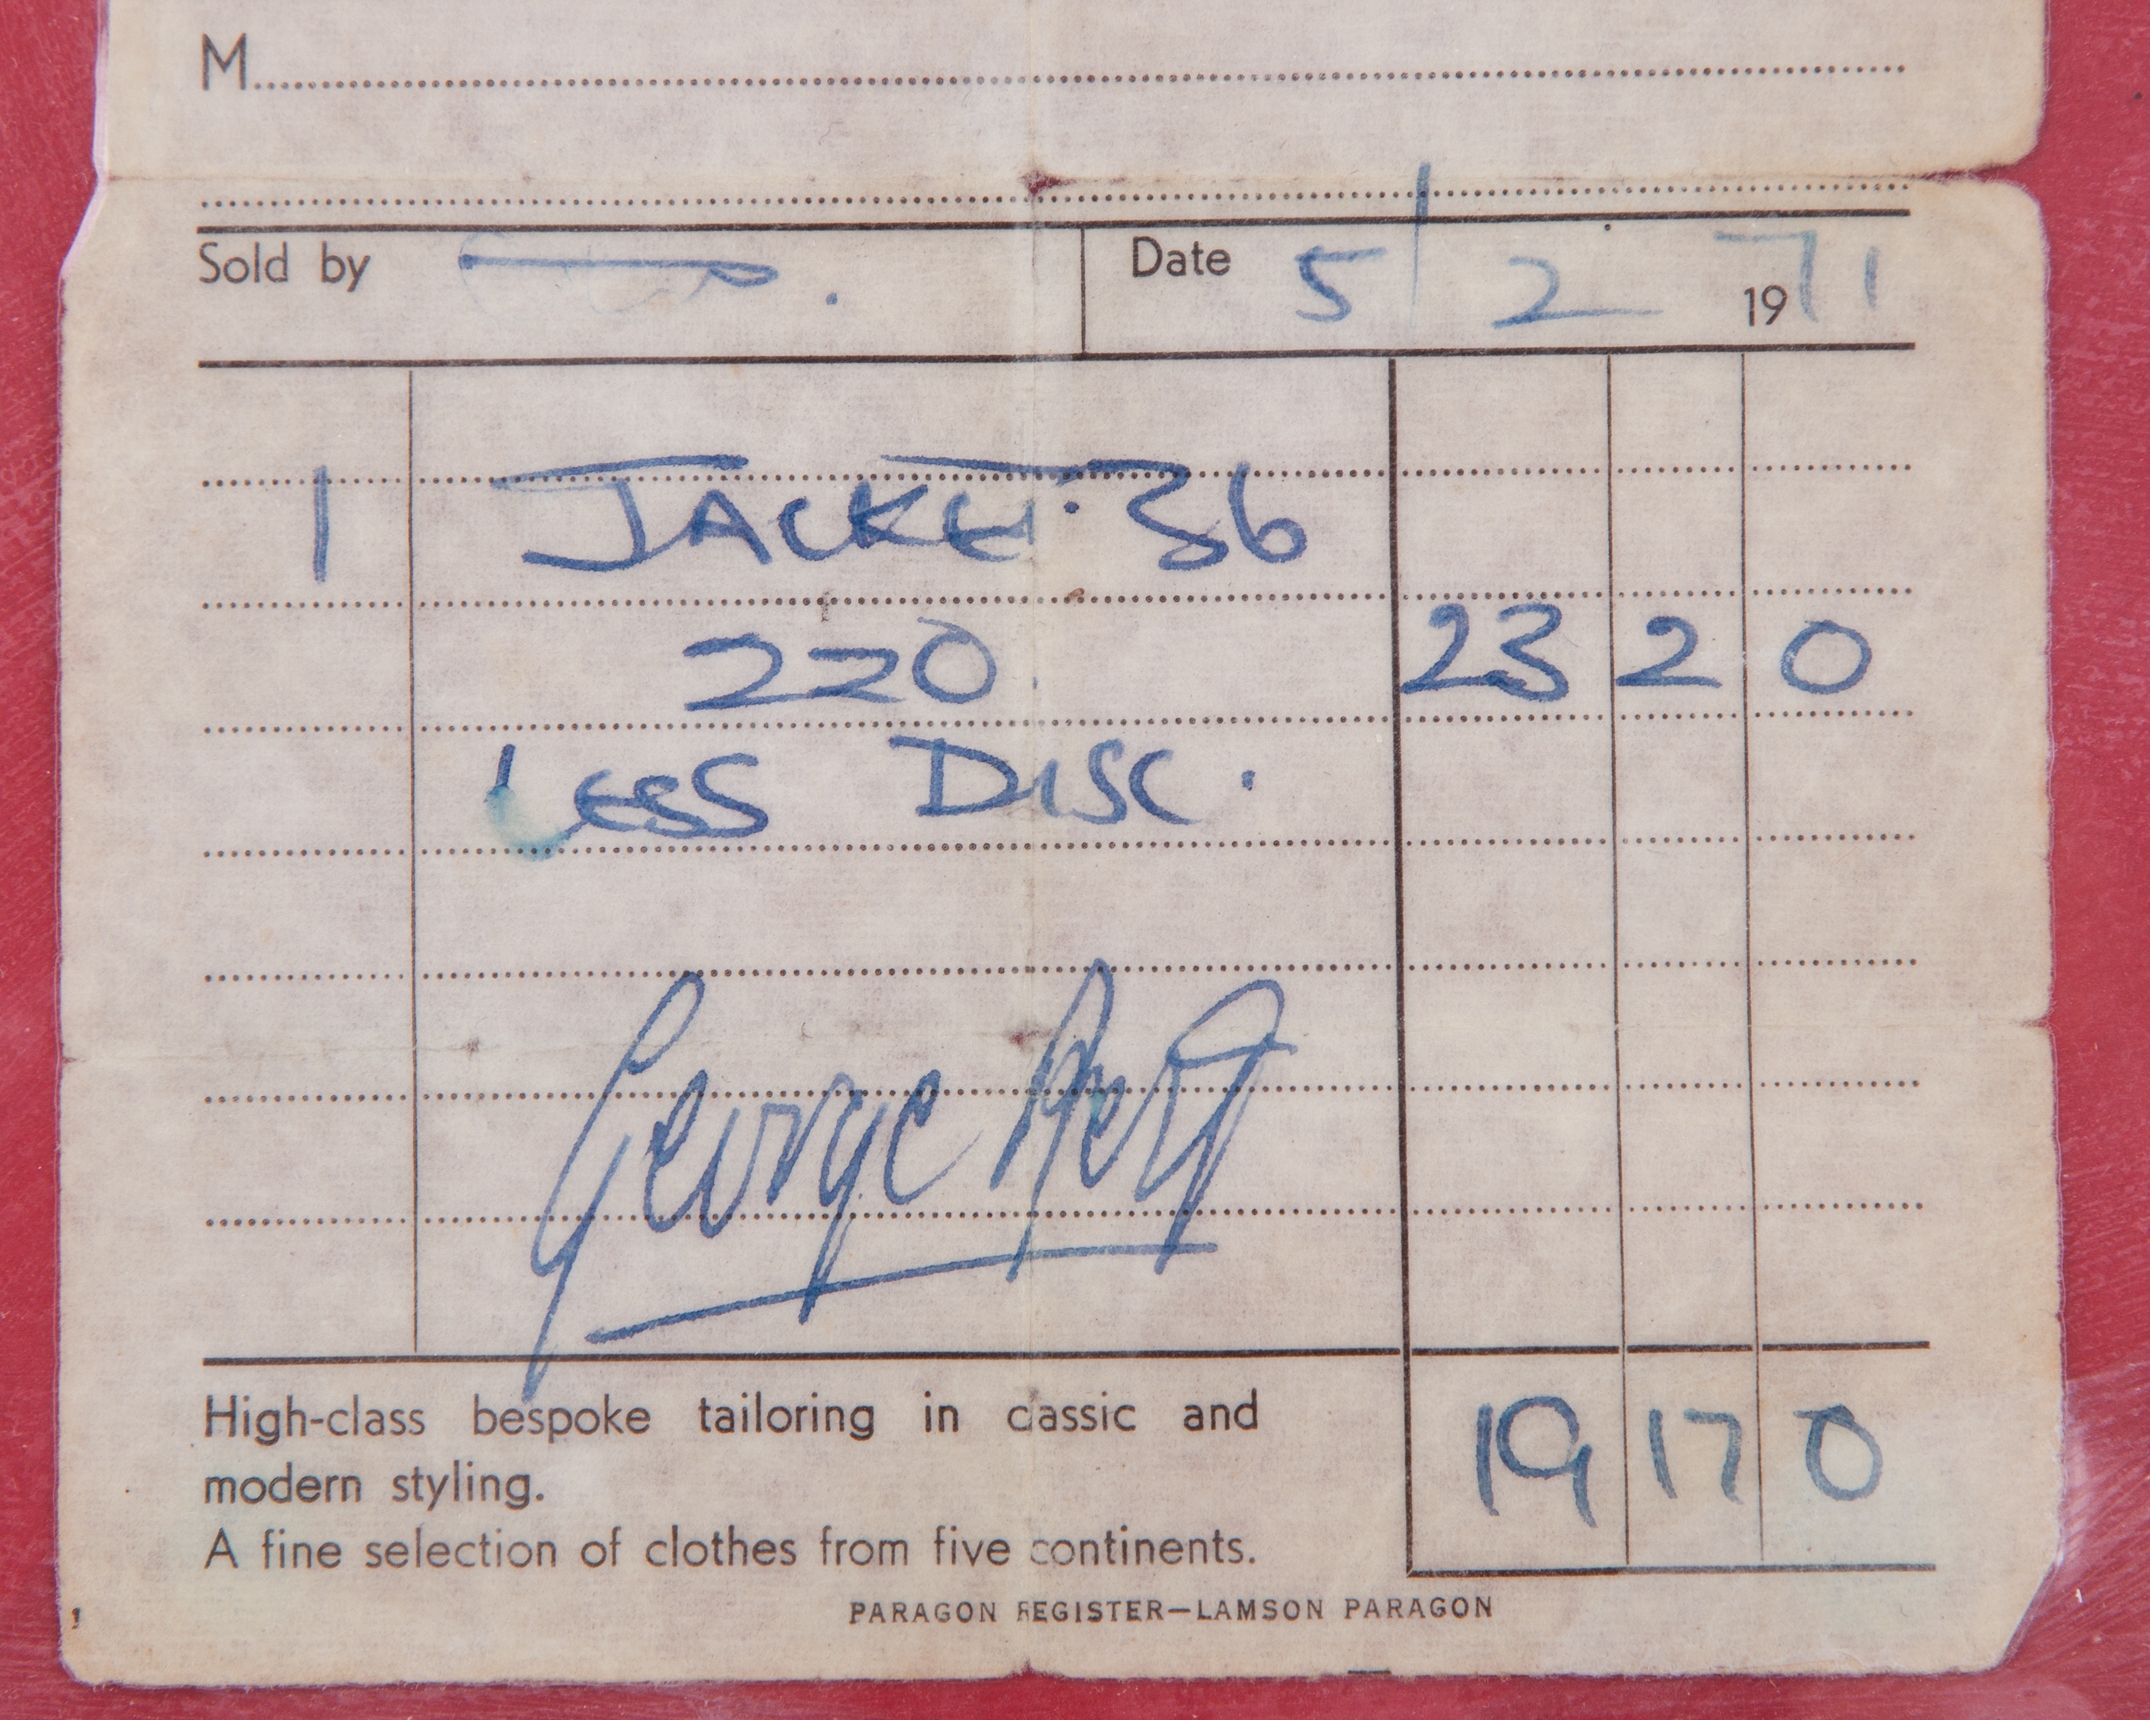 M
Sold by
Date 5/2 1971
1 JACKET 36
220 23 2 0
Less DISC.
George Best
High-class bespoke tailoring in classic and
modern styling.
A fine selection of clothes from five continents.
19 17 0
PARAGON REGISTER—LAMSON PARAGON